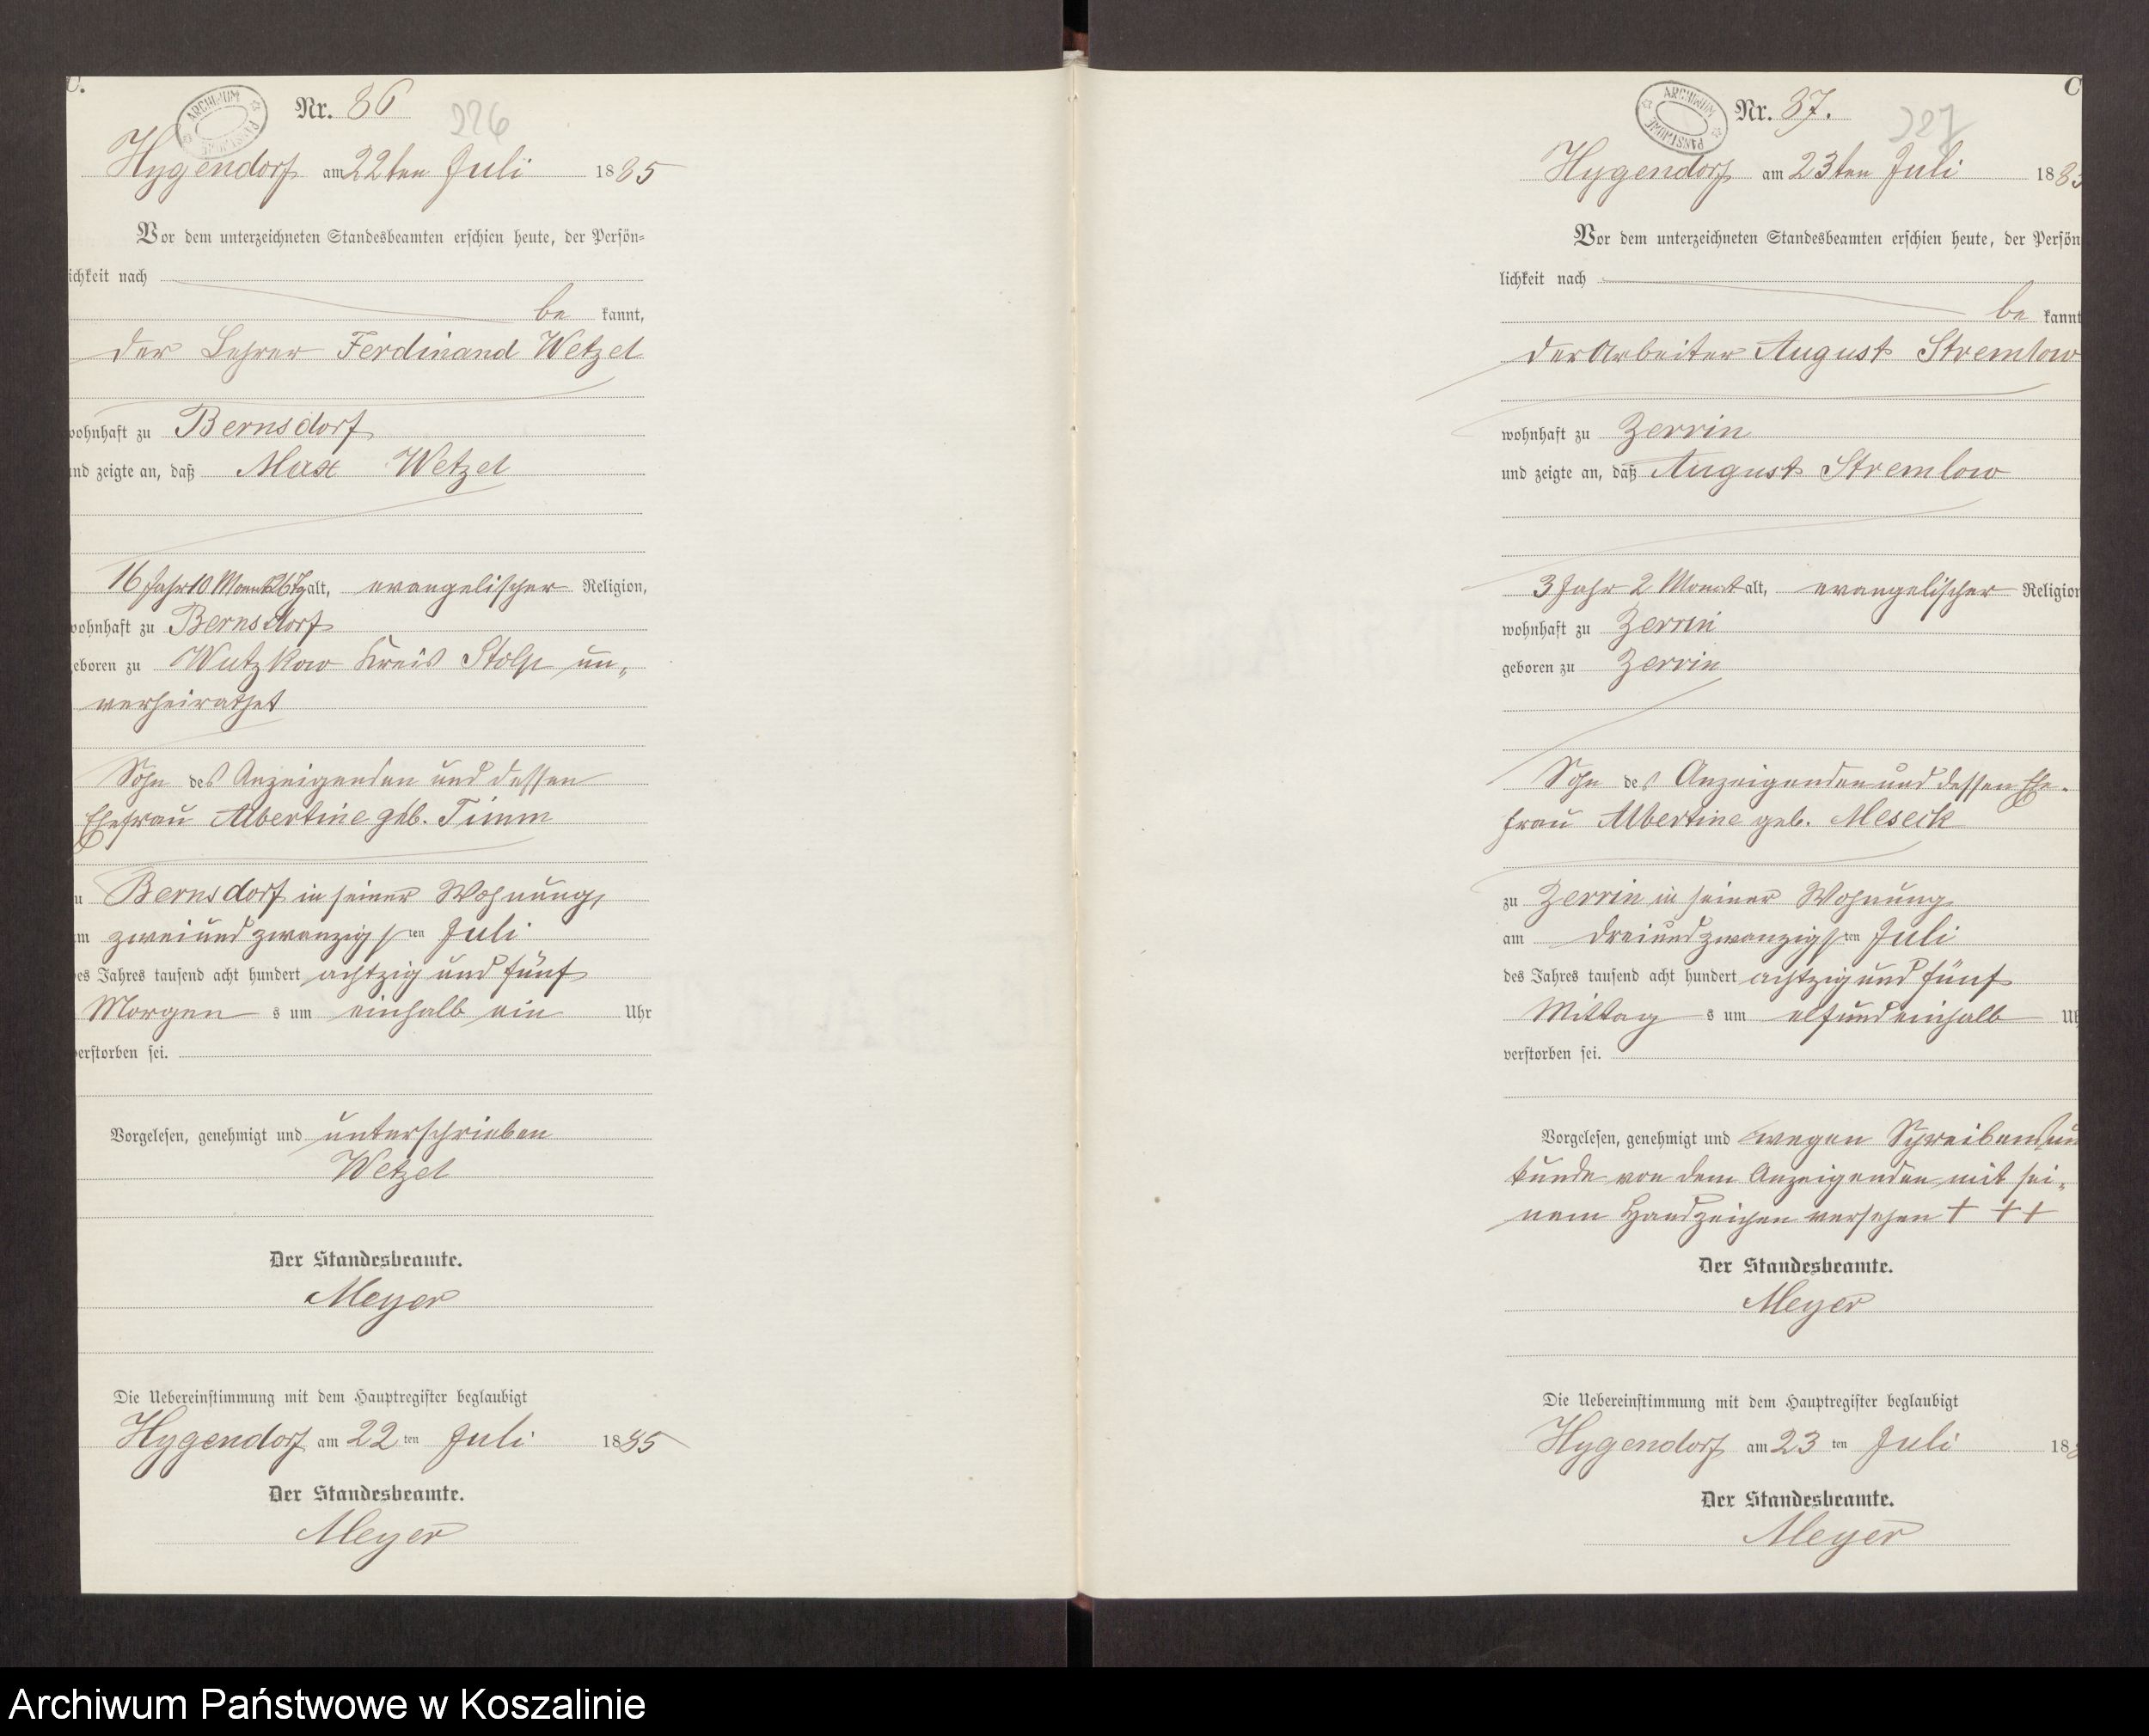 C.
ARCHIWUM PAŃSTWOWE
Nr. 86
226
Hygendorf am 22ten Juli 1885
Vor dem unterzeichneten Standesbeamten erschien heute, der Persön=
lichkeit nach
be kannt,
der Lehrer Ferdinand Wetzel
wohnhaft zu Bernsdorf
und zeigte an, daß Max Wetzel
16 Jahr 10 Monat 26 Tg alt, evangelischer Religion,
wohnhaft zu Bernsdorf
geboren zu Wutzkow Kreis Stolp un„
verheirathet
Sohn des Anzeigenden und dessen
Ehefrau Albertine geb. Timm
zu Bernsdorf in seiner Wohnung,
am zweiundzwanzigsten Juli
des Jahres tausend acht hundert achtzig und fünf
Morgens um einhalb ein Uhr
verstorben sei.
Vorgelesen, genehmigt und unterschrieben
Wetzel
Der Standesbeamte.
Meyer
Die Uebereinstimmung mit dem Hauptregister beglaubigt
Hygendorf am 22ten Juli 1885
Der Standesbeamte.
Meyer
C
ARCHIWUM PAŃSTWOWE
Nr. 87.
227
Hygendorf am 23ten Juli 1885
Vor dem unterzeichneten Standesbeamten erschien heute, der Persön
lichkeit nach
be kannt
der Arbeiter August Stremlow
wohnhaft zu Zerrin
und zeigte an, daß August Stremlow
3 Jahr 2 Monat alt, evangelischer Religion
wohnhaft zu Zerrin
geboren zu Zerrin
Sohn des Anzeigenden und dessen Ehe-
frau Albertine geb. Meseck
zu Zerrin in seiner Wohnung
am dreiundzwanzigsten Juli
des Jahres tausend acht hundert achtzig und fünf
Mittags um elfundeinhalb Uh
verstorben sei.
Vorgelesen, genehmigt und wegen Schreibensun
kunde von dem Anzeigenden mit sei„
nem Handzeichen versehen + + +
Der Standesbeamte.
Meyer
Die Uebereinstimmung mit dem Hauptregister beglaubigt
Hygendorf am 23ten Juli 188
Der Standesbeamte.
Meyer
Archiwum Państwowe w Koszalinie